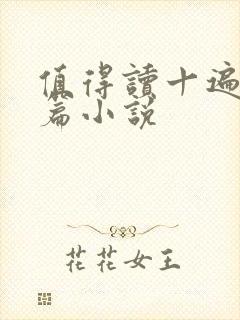 值得讀十遍
篇小說
花花女王